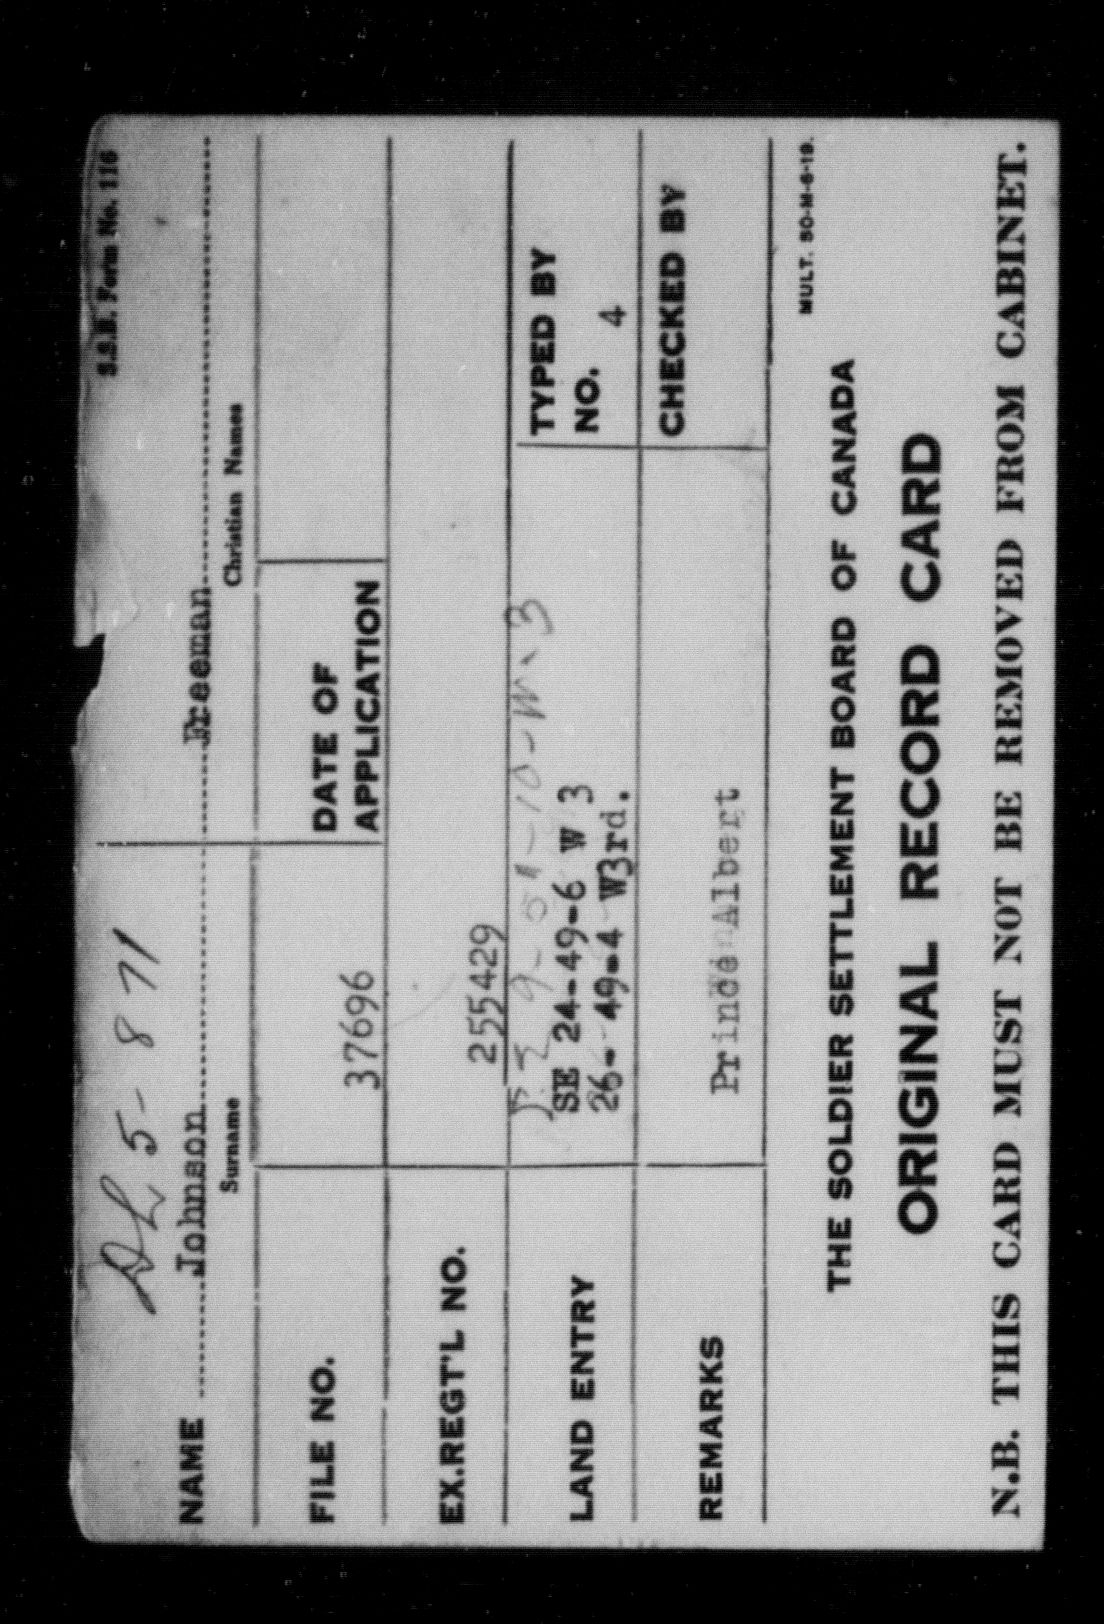 S.S.B. Form No. 116
DL 5-871
NAME Johnson Freeman
Surname Christian Names
FILE NO. 37696 DATE OF APPLICATION
EX.REGT'L NO. 255429
9-51-10-W.3
LAND ENTRY SE 24-49-6 W 3
26- 49-4 W3rd.
TYPED BY
NO. 4
REMARKS Prince Albert
CHECKED BY
MULT. 50-M-6-19.
THE SOLDIER SETTLEMENT BOARD OF CANADA
ORIGINAL RECORD CARD
N.B. THIS CARD MUST NOT BE REMOVED FROM CABINET.